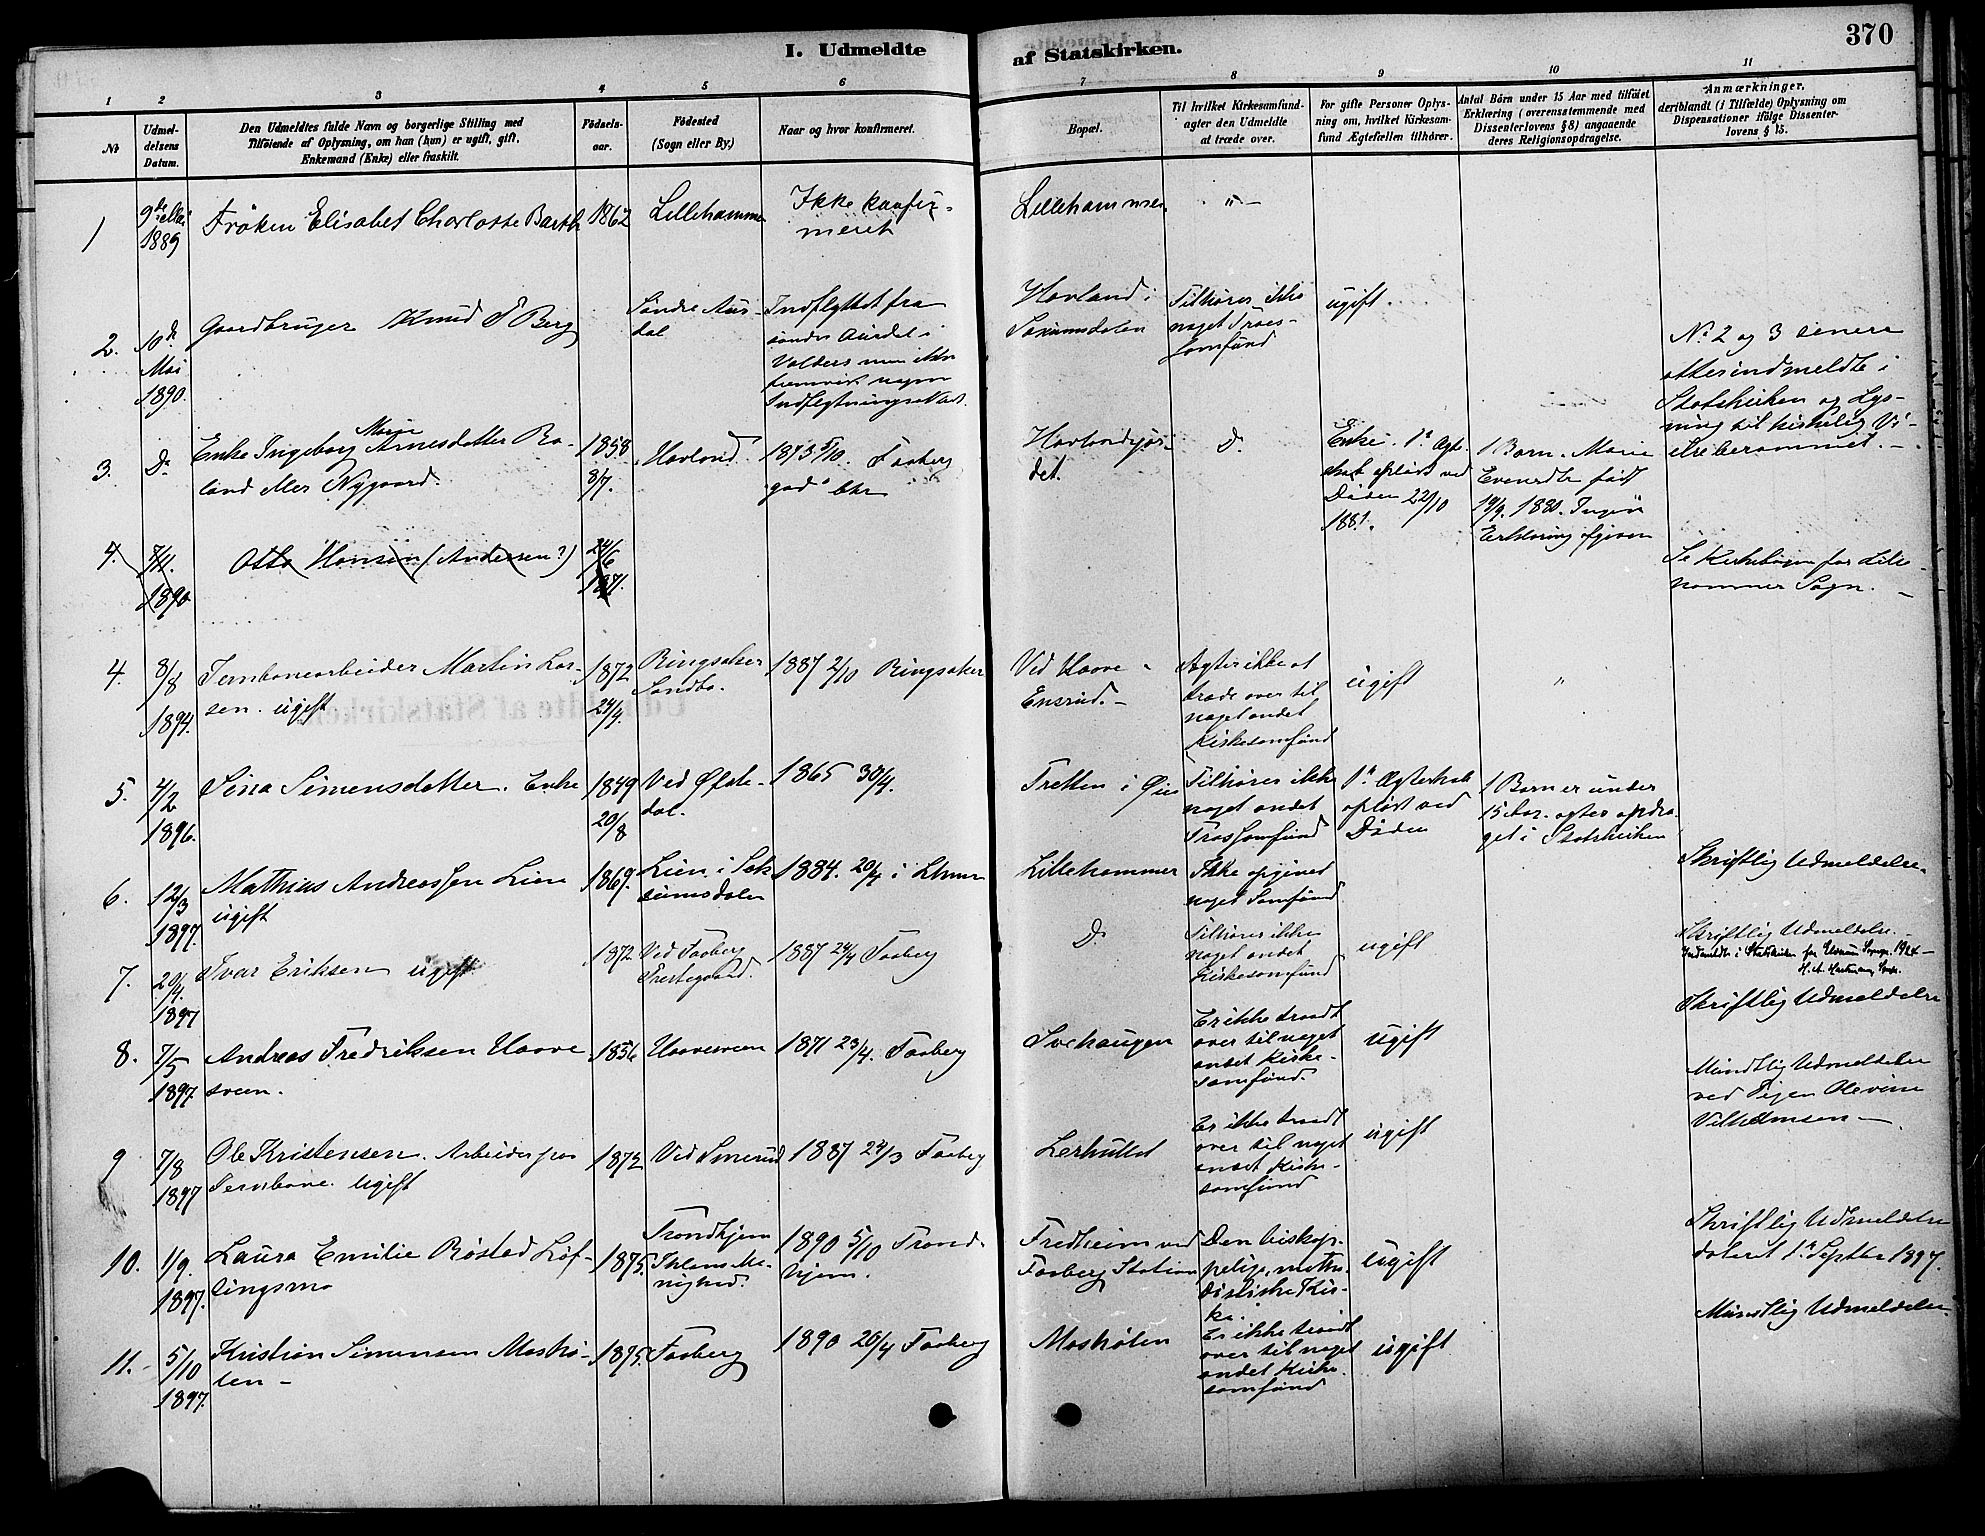 I. Udmeldte af Statskirken.
370
1 2 3 4 5 6 7 8 9 10 11
No
Udmel-
delsens
Datum.
Den Udmeldtes fulde Navn og borgerlige Stilling med
Tilføiende af Oplysning, om han (hun) er ugift, gift,
Enkemand (Enke) eller fraskilt.
Fødsels-
aar.
Fødested
(Sogn eller By.)
Naar og hvor konfirmeret.
Bopæl.
Til hvilket Kirkesamfund-
agter den Udmeldte
at træde over.
For gifte Personer Oplys-
ning om, hvilket Kirkesam-
fund Ægtefællen tilhører.
Antal Børn under 15 Aar med tilføiet
Erklæring (overensstemmende med
Dissenterlovens § 8) angaaende
deres Religionsopdragelse.
Anmærkninger,
deriblandt (i Tilfælde) Oplysning om
Dispensationer ifølge Dissenter-
lovens § 15.
1
9de Mai
1889
Frøken Elisabet Charlotte Barth
1862
Lillehammer
Ikke konfir-
meret
Lillehammer
"
2.
10de
Mai
1890
Gaardbruger Knud O Berg
Søndre Aur-
dal
Indflyttet fra
søndre Aurdal i
Valders men ikke
fremvist nogen
Indflytningsattest
Hovland i
Saxumsdalen
Tilhører ikke
noget Troes-
samfund
ugift.
No 2 og 3 senere
atter indmeldte i
Statskirken og Lys-
ning til kirkelig Vi-
else berammet. -
3.
Do
Enke Ingeborg Marie Arnesdatter Bø-
land eller Nygaard.
1858
8/7.
Hovland
1873 5/10. Faaberg
"god" bkr
Hovlandsjor-
det.
Do.
Enke. 1ste Ægte-
skab opløst ved
Døden 22/10
1881.
1 Barn. Marie
Evensdtr født
19/9. 1880. Ingen
Erklæring afgiven
4.
7/11.
1890
Otto Hansen (Andersen?)
24/6
1871.
Se Kirkebogen for Lille-
hammer Sogn. -
4.
8/8
1894.
Jernbanearbeider Martin Lar-
sen. ugift
1872
24/4.
Ringsaker
Sandbo.
1887 2/10 Ringsaker
Ved Haave-
Ensrud. -
Agter ikke at
træde over til
noget andet
Kirkesamfund
ugift
"
5.
4/2
1896.
Sina Simensdatter. Enke
1849
20/8
Ved Øfste-
dal.
1865 30/4.
Tretten i Øier
Tilhører ikke
noget andet
Trossamfund
1ste Ægteskab
opløst ved
Døden
1 Barn er under
15 Aar. agtes opdra-
get i Statskirken
6.
12/3
1897.
Mathias Andreassen Lien
ugift
1869.
Lien i Sak-
sumsdalen
1884. 20/4 i Lhmr
Lillehammer
Ikke opgived
noget Samfund
Skriftlig Udmeldelse.
7.
20/4.
1897
Ivar Eriksen ugift
1872
Ved Faaberg
Prestegaard.
1887 24/4 Faaberg
Do.
Tilhører ikke
noget andet
Kirkesamfund
ugift
Skriftlig Udmeldelse. -
Indmeldt i Statskirken 1924 -
8.
7/5
1897.
Andreas Fredriksen Haave
sveen.
1856
Haavesveen
1871 23/4. Faaberg
Svehaugen
Er ikke traadt
over til noget
andet Kirke-
samfund.
ugift
Skriftlig Udmeldelse
9
7/8
1897
Ole Kristensen. Arbeider paa
Jernbane. ugift
1872
Ved Smerud
1887 24/3 Faaberg
Lerhullet
Er ikke traadt
over til noget
andet Kirke-
samfund
ugift
Mundtlig Udmeldelse
ved Pigen Olevine
Vilhelmsen -
10.
1/9.
1897.
Laura Emilie Røsted Løf-
lingsmo
1875.
Trondhjem
Ihlens Me-
nighed.
1890 5/10 Trond-
hjem.
Fredheim ved
Faaberg Station
Den biskop-
pelige, metho-
distiske Kir-
ke.
ugift
Skriftlig Udmeldelse
dateret 1ste Septbr 1897.
11.
5/10
1897.
Kristian Simensen Moshø-
len -
1875.
Faaberg
1890 20/4 Faaberg
Moshølen
Er ikke traadt
over til noget
andet Kirke-
samfund
ugift
Mundtlig Udmeldelse